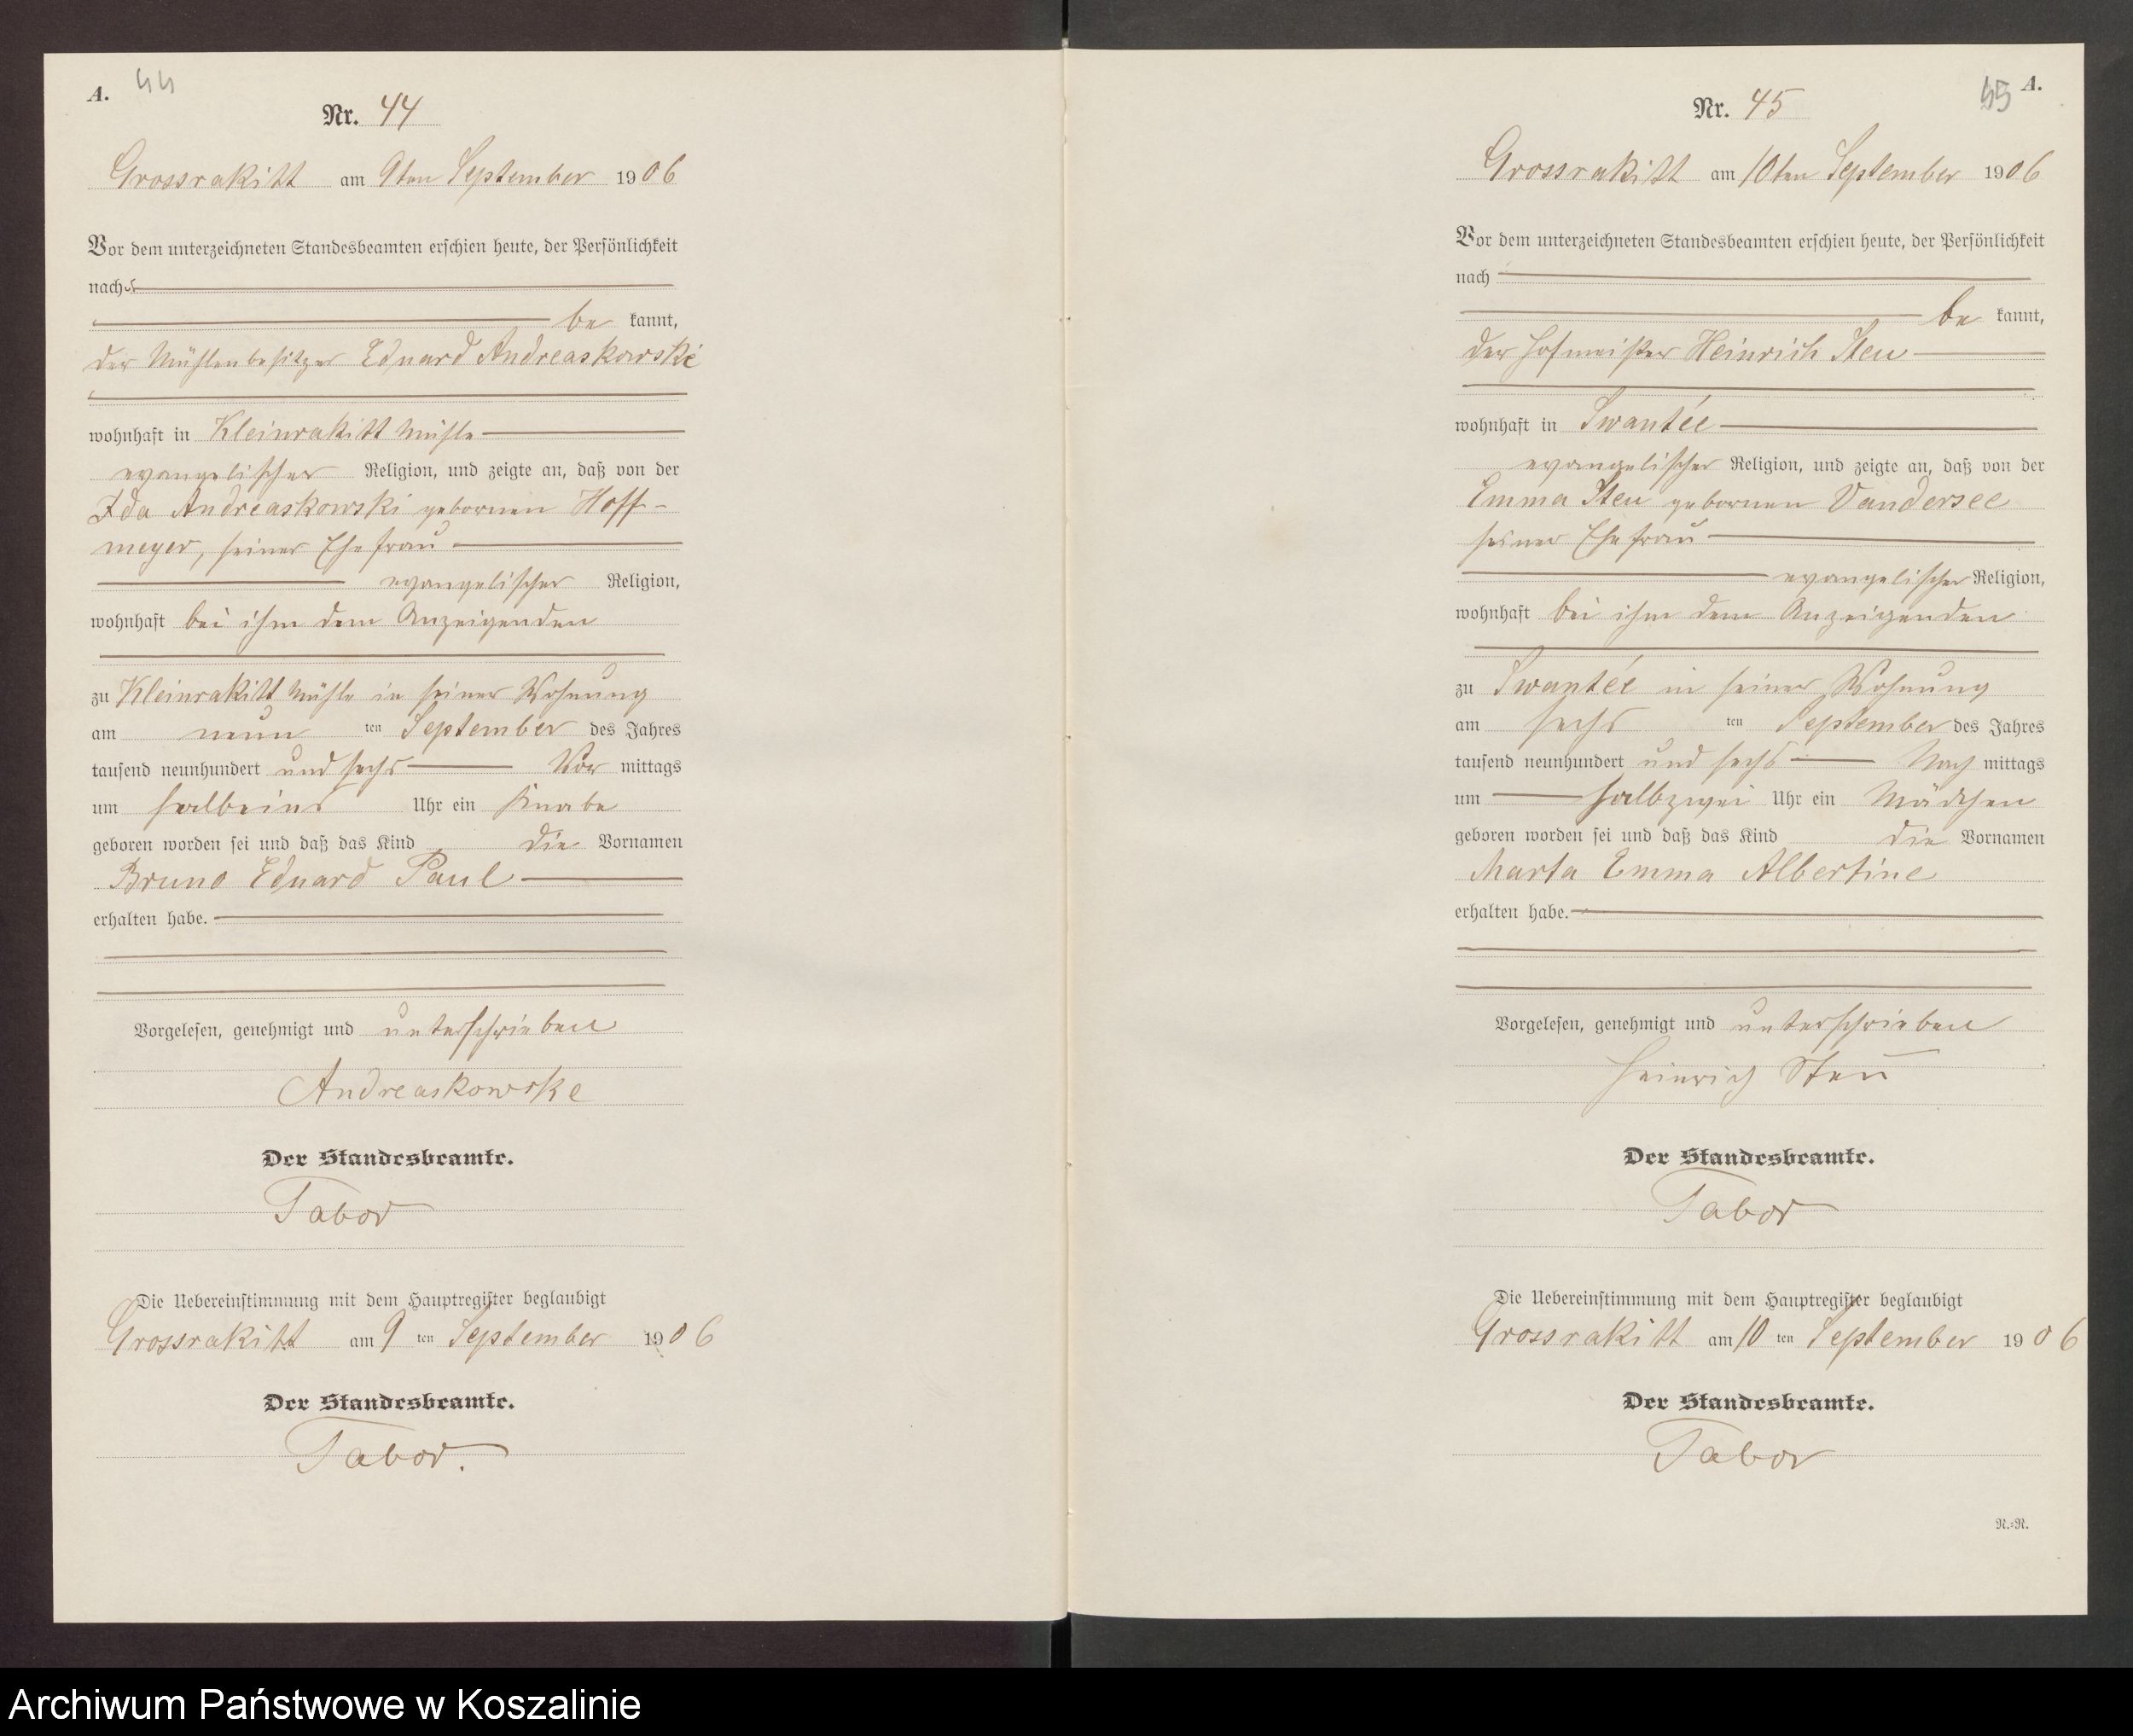 A. 44
Nr. 44
Grossrakitt am 9ten September 1906
Vor dem unterzeichneten Standesbeamten erschien heute, der Persönlichkeit
nach
be kannt,
der Mühlenbesitzer Eduard Andreaskowski
wohnhaft in Kleinrakitt Mühle
evangelischer Religion, und zeigte an, daß von der
Ida Andreaskowski gebornen Hoff-
meyer, seiner Ehefrau
evangelischer Religion,
wohnhaft bei ihm dem Anzeigenden
zu Kleinrakitt Mühle in seiner Wohnung
am neun ten September des Jahres
tausend neunhundert und sechs Vor mittags
um halbeins Uhr ein Knabe
geboren worden sei und daß das Kind die Vornamen
Bruno Eduard Paul
erhalten habe.
Vorgelesen, genehmigt und unterschrieben
Andreaskowske
Der Standesbeamte.
Tabor
Die Uebereinstimmung mit dem Hauptregister beglaubigt
Grossrakitt am 9 ten September 1906
Der Standesbeamte.
Tabor.
45 A.
Nr. 45
Grossrakitt am 10ten September 1906
Vor dem unterzeichneten Standesbeamten erschien heute, der Persönlichkeit
nach
be kannt,
der Hofmeister Heinrich Steu
wohnhaft in Swantée
evangelischer Religion, und zeigte an, daß von der
Emma Steu gebornen Vandersee
seiner Ehefrau
evangelischer Religion,
wohnhaft bei ihm dem Anzeigenden
zu Swantée in seiner Wohnung
am sechs ten September des Jahres
tausend neunhundert und sechs Nach mittags
um halbzwei Uhr ein Mädchen
geboren worden sei und daß das Kind die Vornamen
Marta Emma Albertine
erhalten habe.
Vorgelesen, genehmigt und unterschrieben
Heinrich Steu
Der Standesbeamte.
Tabor
Die Uebereinstimmung mit dem Hauptregister beglaubigt
Grossrakitt am 10 ten September 1906
Der Standesbeamte.
Tabor
N.=N.
Archiwum Państwowe w Koszalinie